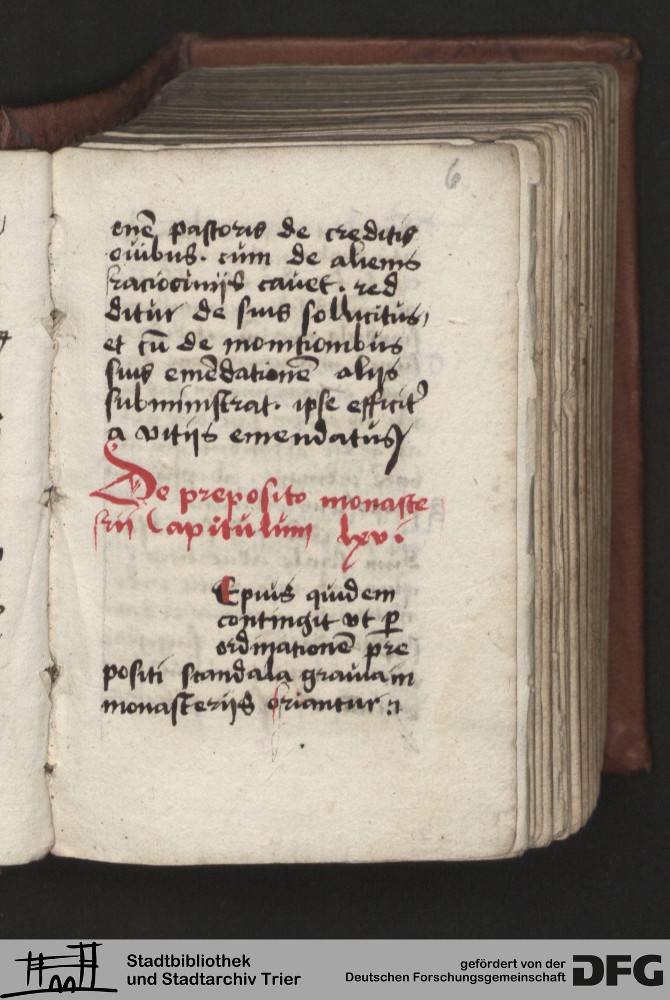 6
onē pastoris de creditis
ouibus. cum de alienis
raciociniis cauet. red
ditur de suis sollicitus,
et cū de monitionibus
suis emēdationē aliis
subministrat. ipse efficit᾽
a vitiis emendatus
De preposito monaste
rii Capitulum lxv.
Epius quidem
contingit vt ꝑ
ordinationē p̄re
positi scandala grauia in
monasteriis oriantur
Stadtbibliothek
und Stadtarchiv Trier
gefördert von der
Deutschen Forschungsgemeinschaft
DFG